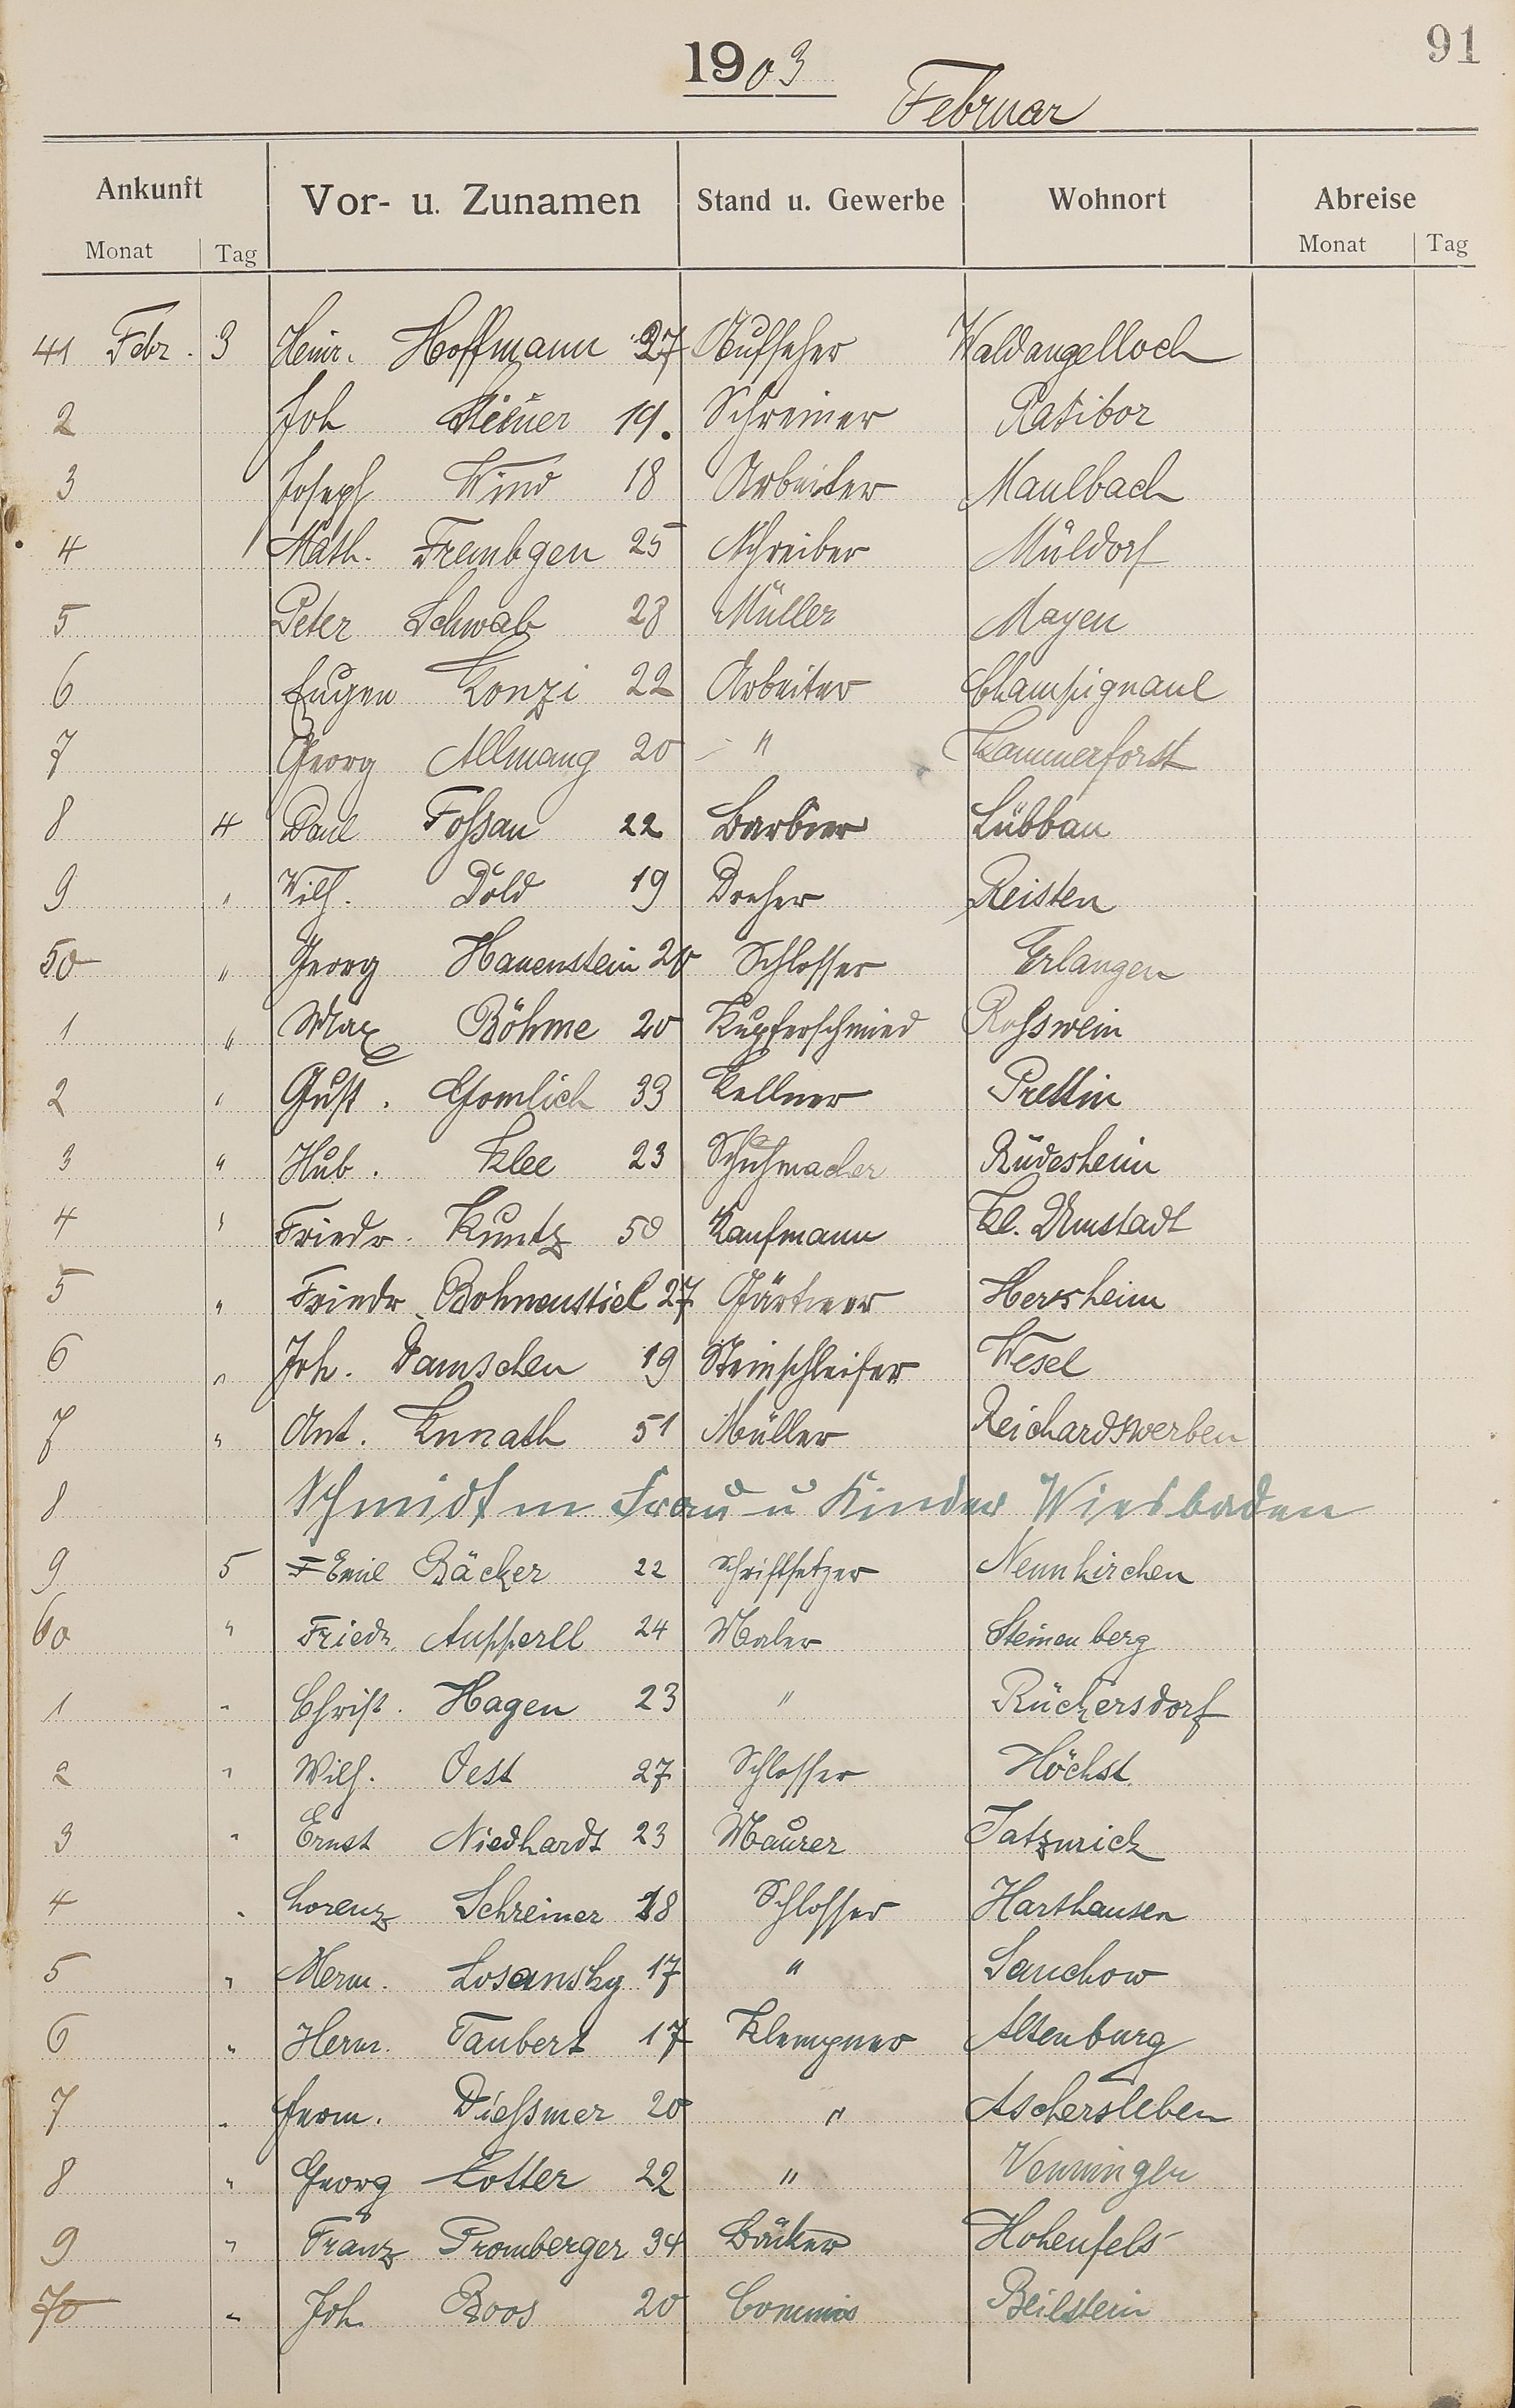 91
1903
Februar
Ankunft Vor- u. Zunamen Stand u. Gewerbe Wohnort Abreise
Monat Tag Monat Tag
41 Febr. 3 Heinr. Hoffmann 27 Aufseher Waldangelloch
2 Joh 19. Schreiner Ratibor
3 Joseph Wind 18 Arbeiter Maulbach
4 Math. Frembgen 25 Schreiber Müldorf
5 Peter Schwab 28 Müller Mayen
6 Eugen Konzi 22 Arbeiter Champignaul
7 Georg Allmang 20 " Kammerforst
8 4 Paul Foßsau 22 Barbier Lübbau
9 " Wilh. Dold 19 Dreher Reisten
50 " Georg Hauenstein 20 Schlosser Erlangen
1 " Max Böhme 20 Kupferschmied Rosswein
2 " Gust. 33 Kellner Prettin
3 " Hub. Klee 23 Schuhmacher Rüdesheim
4 " Friedr. Kuntz 50 Kaufmann Kl. Umstadt
5 " Friedr. Bohnenstiel 27 Gärtner Herxheim
6 " Joh. Damschen 19 Steinschleifer Wesel
7 " Ant. Knnath 51 Müller Reichardswerben
8 Schmidt m Frau u Kinder Wiesbaden
9 5 Emil Bäcker 22 Schriftsetzer Neunkirchen
60 " Friedr. Aupperll 24 Maler Steinenberg
1 " Christ. Hagen 23 " Rückersdorf
2 " Wilh. Oest 27 Schlosser Höchst
3 " Ernst Niedhardt 23 Maurer
4 " Lorenz Schreiner 18 Schlosser Harthausen
5 " Herm. Losansky 17 " Sanchow
6 " Herm. Taubert 17 Klempner Altenburg
7 " Herm. Diessmer 20 " Aschersleben
8 " Georg Kotter 22 " Venningen
9 " Franz Promberger 34 Bäcker Hohenfels
70 " Joh. Roos 20 Commis Beilstein